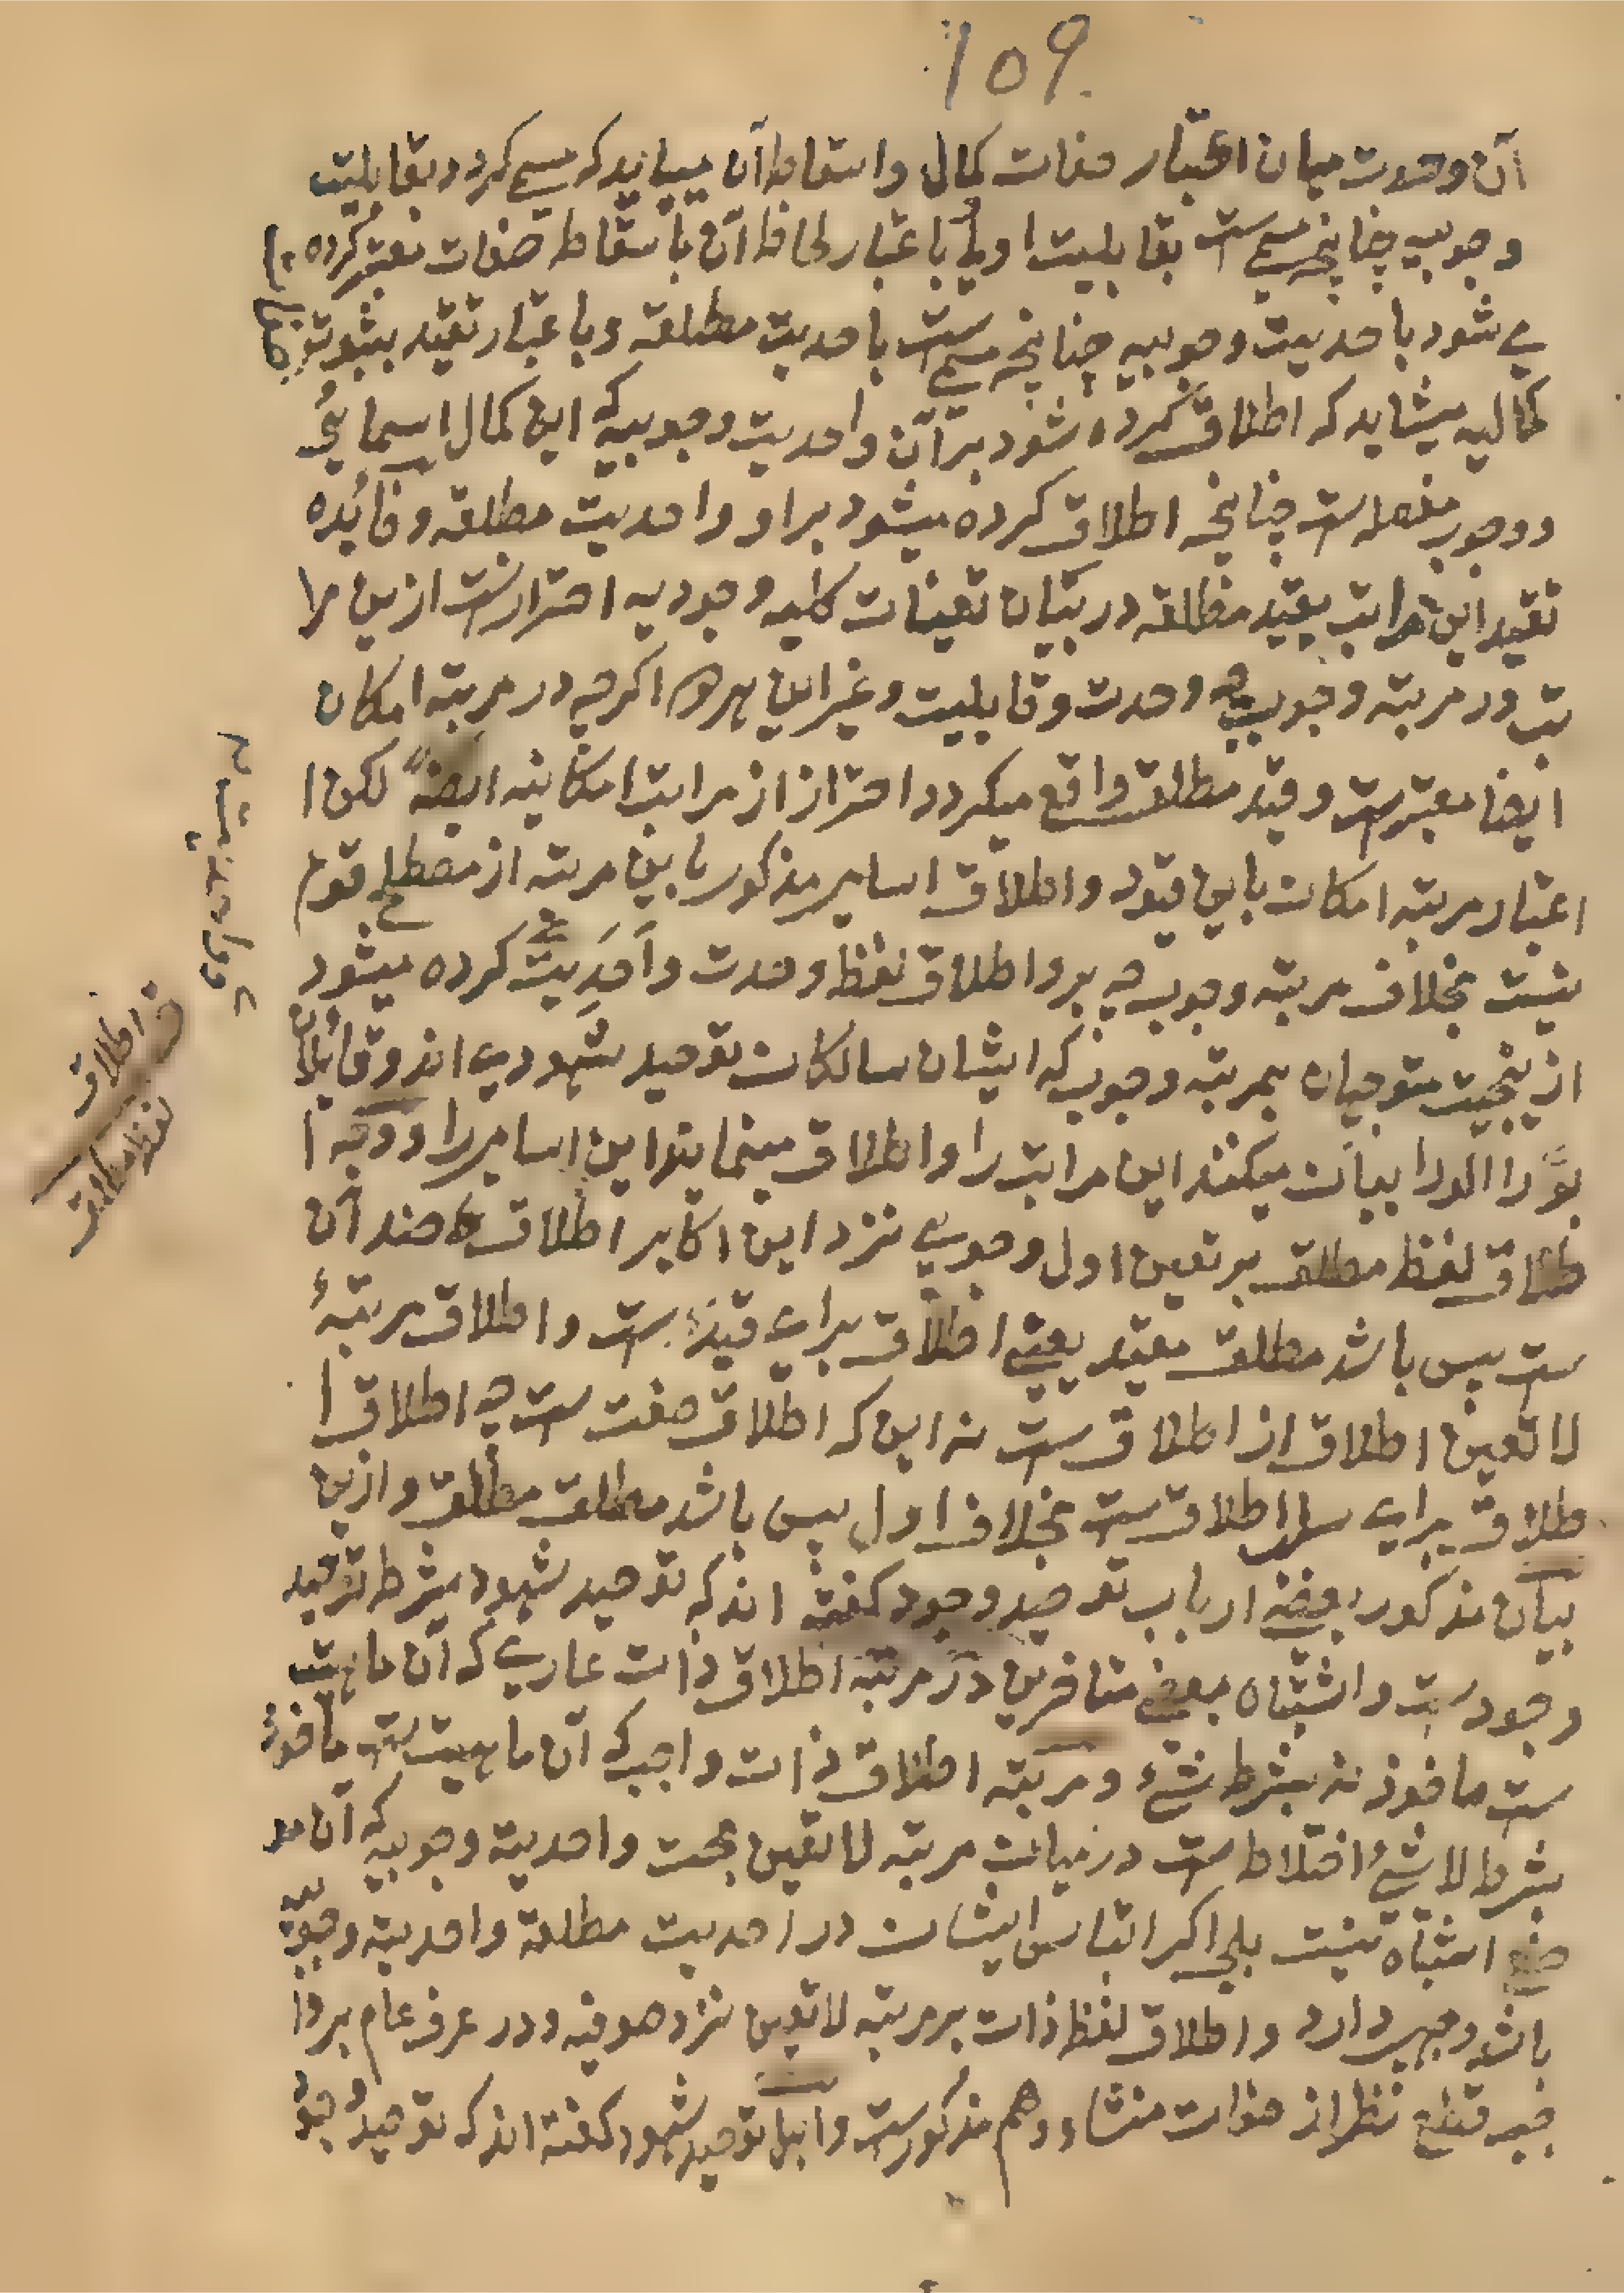 109
آن وحدت میان اعتبار صفات کمال و اسقاط آن میباید که مسمی کردد بقابلیت
وجوبیه چنانچه مسمی ست بقابلیت اولی و باعتبار لحاظ آن باسقاط صفات معتبر کرده
می شود باحدیت وجوبیه چنانچه مسمی ست باحدیت مطلقه و باعتبار تقید بثبوت
کمالیه میشاید که اطلاق کرده شود بر آن واحدیت وجوبیه که این کمال اسمائی
و وجوب مفصله است چنانچه اطلاق کرده میشود براو واحدیت مطلقه و فائده
تقید این مراتب بقید مطلقه در بیان تعینات کلیه وجودیه احترازست ازین مرا
تب در مرتبه وجوب چه وحدت و قابلیت و غیر این هر دو اکرچه در مرتبه امکان
ایضا معتبرست و قید مطلق واقع میکردد احتراز از مراتب امکانیه ایضاً لکن ا
اعتبار مرتبه امکان باین قیود و اطلاق اسامی مذکور باین مرتبه از مصطلح قوم
نیست بخلاف مرتبه وجوب چه برو اطلاق لفظ وحدت و اَحَدِیَّت کرده میشود
ازینجهت متوجهان بمرتبه وجوب که ایشان سالکان توحید شهودی اند و قائلان
بوَرا الورا بیان میکنند این مراتب را و اطلاق مینمایند این اسامی را و وجه ا
طلاق لفظ مطلق بر تعین اول وجوبی نزد این اکابر اطلاق کا ضد آن
ست پس باشد مطلق مقید یعنی اطلاق برای قید ست و اطلاق مرتبهٔ
لا تعین اطلاق از اطلاق ست نه این که اطلاق صفت ست چه اطلاق ا
طلاق برای سلب اطلاق ست بخلاف اول پس باشد مطلق مطلق و ازین
بیان مذکور بعضی ارباب توحید وجود کفته اند که توحید شهود بشرط توحید
وجود ست و اشتباه بعضی متاخرین در مرتبه اطلاق ذات عاری که آن ماهیت
ست ماخوذ نه بشرط شیٔ و مرتبه اطلاق ذات واجب که آن ماهیت ست ماخوذ
بشرط لا شیٔ اختلاط ست در میان مرتبه لا تعین بحت و احدیة وجوبیه که آن مو
ضع اشتباه نیست بلی اکر التباس ایشان در احدیت مطلقة و احدیته وجوبیه
باشد وجهی دارد و اطلاق لفظ ذات بر مرتبه لا تعین نزد صوفیه و در عرف عام بر وا
جب قطع نظر از صفات منشاء وهم مذکورست و اهل توحید شهود کفته اند که توحید وجود
ف اطلاق
لفظ مطلق